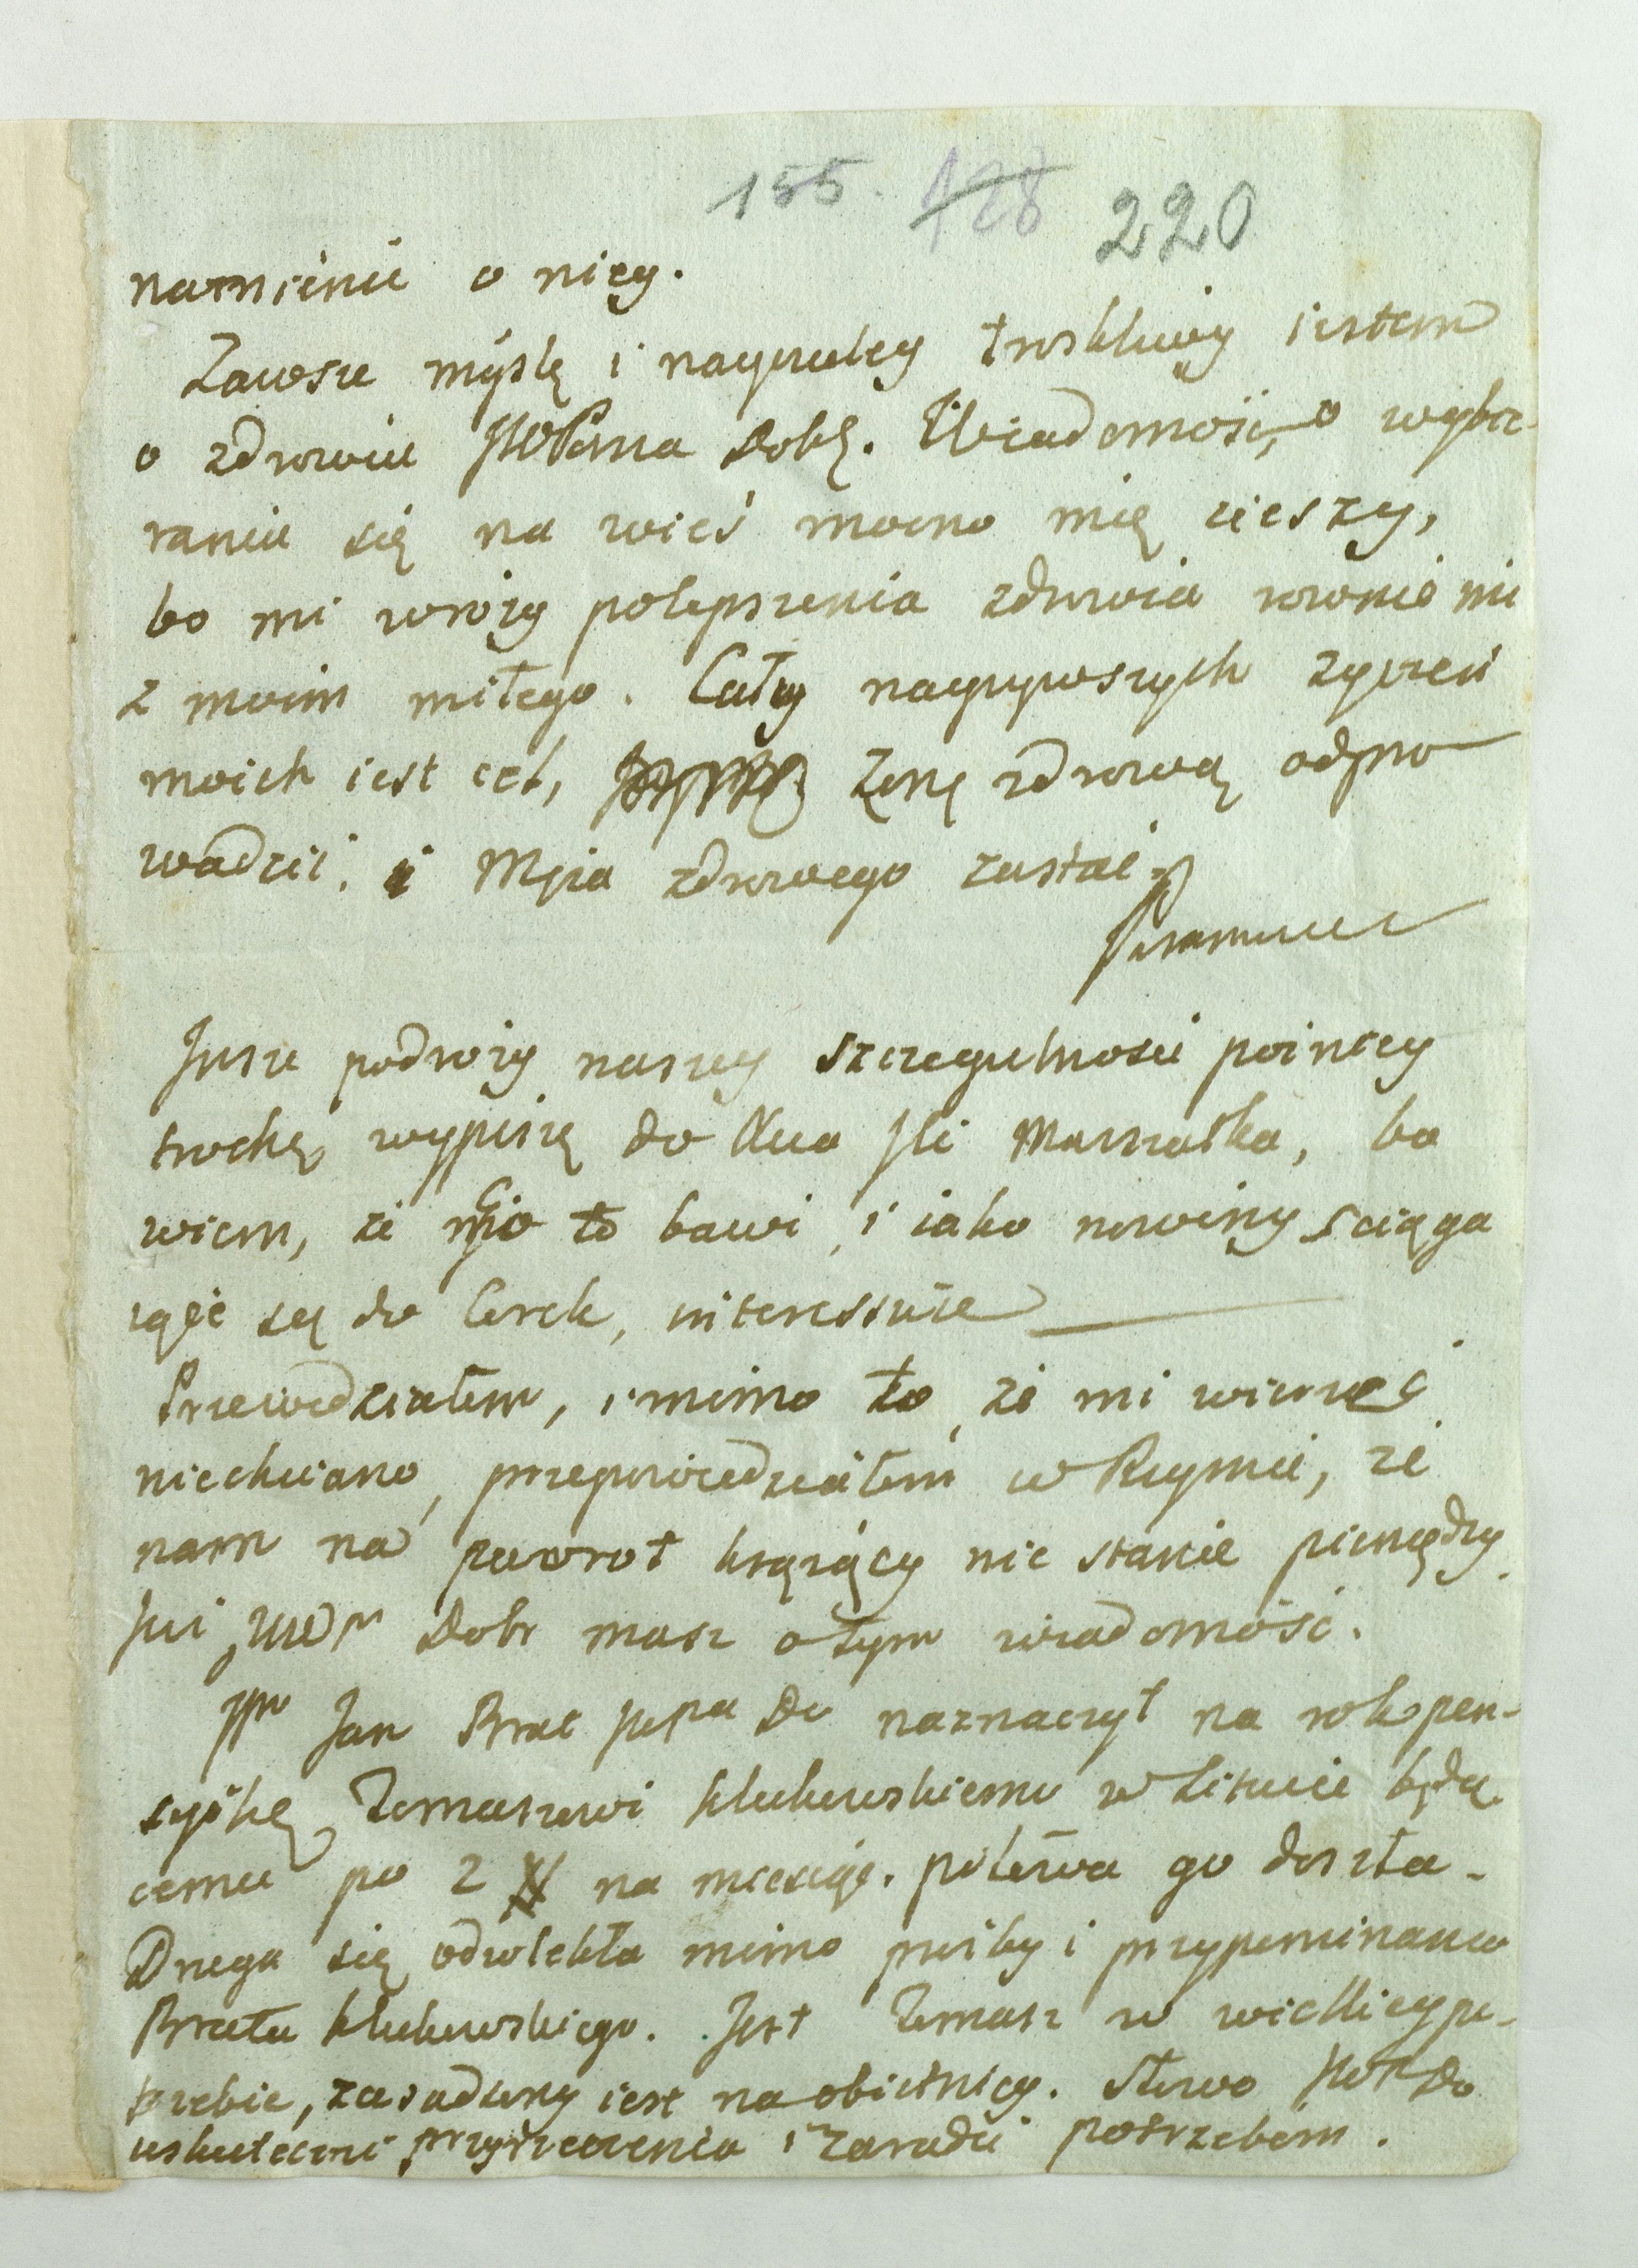 155. 128 220
namienić o nięy.
Zawsze myślę i nayczulęy troskliwy iestem
o zdrowiu JWPana Dobŕ. Wiadomość, o wybie-
raniu się na wieś mocno mię cieszy,
bo mi wroży polepszenia zdrowia rownie mi
z moim miłego. Cały nayżywszych życzeń
moich iest cel, Zonę zdrową odpro
wadzić. i Męża zdrowego zastać.
Piramowicz
Jesze podroży naszey szczegulności poźnięy
trochę wypiszę do Xcia JMci Marszałka, bo
wiem, że Go to bawi, i iako nowiny sciąga
iące się do Corek, interessuie
Przewidziałem, i mimo to, że mi wierzyć
niechciano, przepowiedziałem w Rzymie, że
nam na powrot krążący nie stanie pieniędzy.
Już JWP Dobr masz o tym wiadomość.
JP Jan Brat JWPa Do naznaczył na rok pen-
syikę Tomaszowi Klukowskiemu w Litwie będą
cemu po 2 # na miesiąc. połowa go doszła.
Druga się odwlekła mimo proźby i przypominania
Brata Klukowskiego. Jest Tomasz w wielkięy po-
trzebie, zasadzony iest na obietnicy. Słowo JWP Do
uskuteczni przyrzeczenia i zaradzi potrzebom.